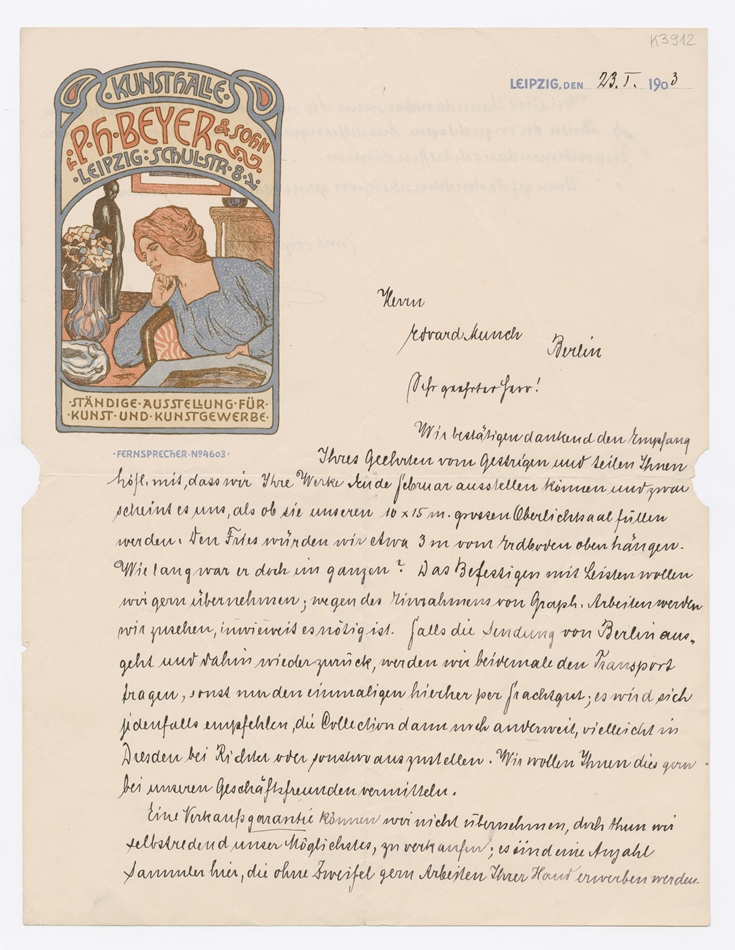 K3912
KUNSTHALLE
P·H·BEYER & SOHN
LEIPZIG·SCHULSTR·8·
STÄNDIGE·AUSSTELLUNG·FÜR·
KUNST·UND·KUNSTGEWERBE·
·FERNSPRECHER·No4603·
LEIPZIG, DEN 23. I. 1903
Herrn
Edvard Munch
Berlin
Sehr geehrter Herr!
Wir bestätigen dankend den Empfang
Ihres Geehrten vom Gestrigen und teilen Ihnen
höfl. mit, dass wir Ihre Werke Ende Februar ausstellen können und zwar
scheint es uns, als ob sie unseren 10 x 15 m. grossen Oberlichtsaal füllen
werden. Den Fries würden wir etwa 3 m vom Erdboden oben hängen.
Wie lang war er doch im ganzen? Das Befestigen mit Leisten wollen
wir gern übernehmen; wegen des Einrahmens von Graph. Arbeiten werden
wir zusehen, inwieweit es nötig ist. Falls die Sendung von Berlin aus-
geht und dahin wieder zurück, werden wir beidemale den Transport
tragen, sonst nur den einmaligen hierher per Frachtgut; es wird sich
jedenfalls empfehlen, die Collection dann noch anderweit, vielleicht in
Dresden bei Richter oder sonstwo auszustellen. Wir wollen Ihnen dies gern
bei unseren Geschäftsfreunden vermitteln.
Eine Verkaufsgarantie können wir nicht übernehmen, doch thun wir
selbstredend unser Möglichstes, zu verkaufen; es sind eine Anzahl
Sammler hier, die ohne Zweifel gern Arbeiten Ihrer Hand erwerben werden.